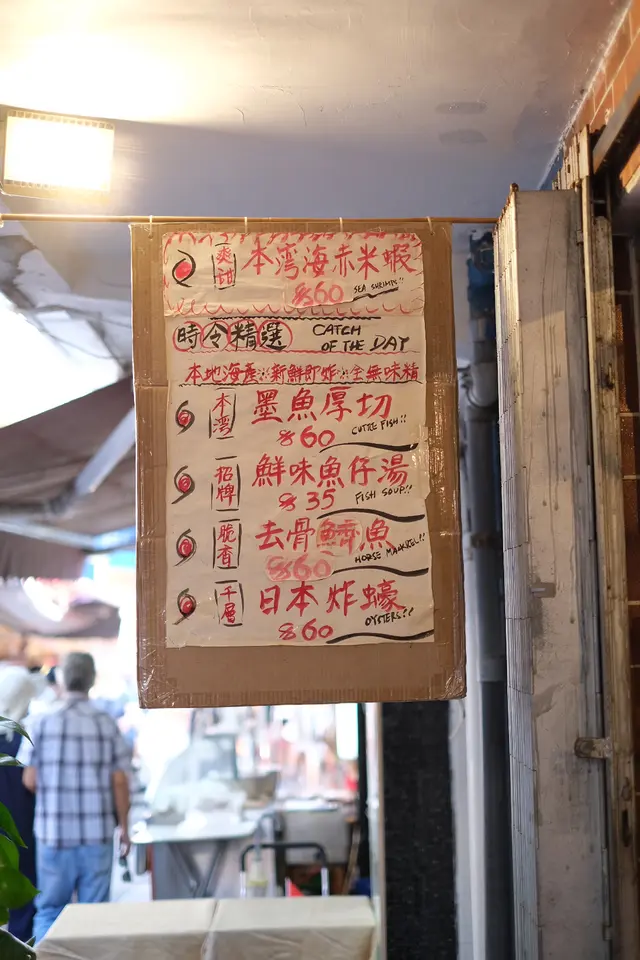 爽甜 本湾海赤米蝦
$60 SEA SHRIMPS!!
時令精選 CATCH OF THE DAY
本地海產※新鮮即炸※全無味精
本湾 墨魚厚切
$60 CUTTE FISH!!
招牌 鮮味魚仔湯
$35 FISH SOUP!!
脆香 去骨鱭魚
$60 HORSE MACKREL!!
千層 日本炸蠔
$60 OYSTERS!!